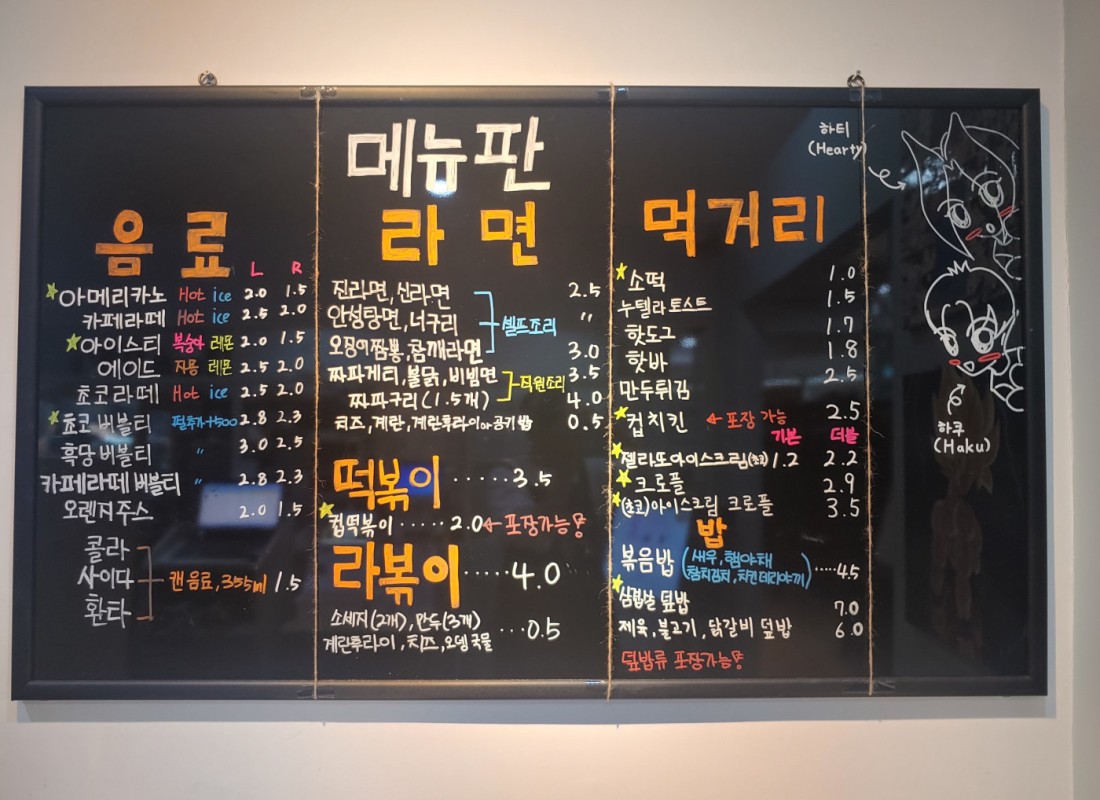 메뉴판
음료
L R
아메리카노 Hot ice 2.0 1.5
카페라떼 Hot ice 2.5 2.0
아이스티 복숭아 레몬 2.0 1.5
에이드 자몽 레몬 2.5 2.0
초코라떼 Hot ice 2.5 2.0
초코 버블티 펄추가+500 2.8 2.3
흑당 버블티 〃 3.0 2.5
카페라떼 버블티 〃 2.8 2.3
오렌지주스 2.0 1.5
콜라
사이다 캔음료, 355ml 1.5
환타
라면
진라면, 신라면 2.5
안성탕면, 너구리 셀프조리 〃
오징어짬뽕, 참깨라면 3.0
짜파게티, 불닭, 비빔면 직원조리 3.5
짜파구리 (1.5개) 4.0
치즈, 계란, 계란후라이 or 공기밥 0.5
떡볶이 ······ 3.5
컵떡볶이 ······ 2.0 ← 포장가능
라볶이 ····· 4.0
소세지(2개), 만두(3개)
계란후라이, 치즈, 오뎅국물 ··· 0.5
먹거리
소떡 1.0
누텔라토스트 1.5
핫도그 1.7
핫바 1.8
만두튀김 2.5
컵치킨 ← 포장 가능 2.5
기본 더블
젤라또아이스크림(초코) 1.2 2.2
크로플 2.9
(초코)아이스크림 크로플 3.5
밥
볶음밥 (새우, 햄야채
참치김치, 치킨데리야끼) ····· 4.5
삼겹살 덮밥 7.0
제육, 불고기, 닭갈비 덮밥 6.0
덮밥류 포장가능
하티
(Hearty)
하쿠
(Haku)